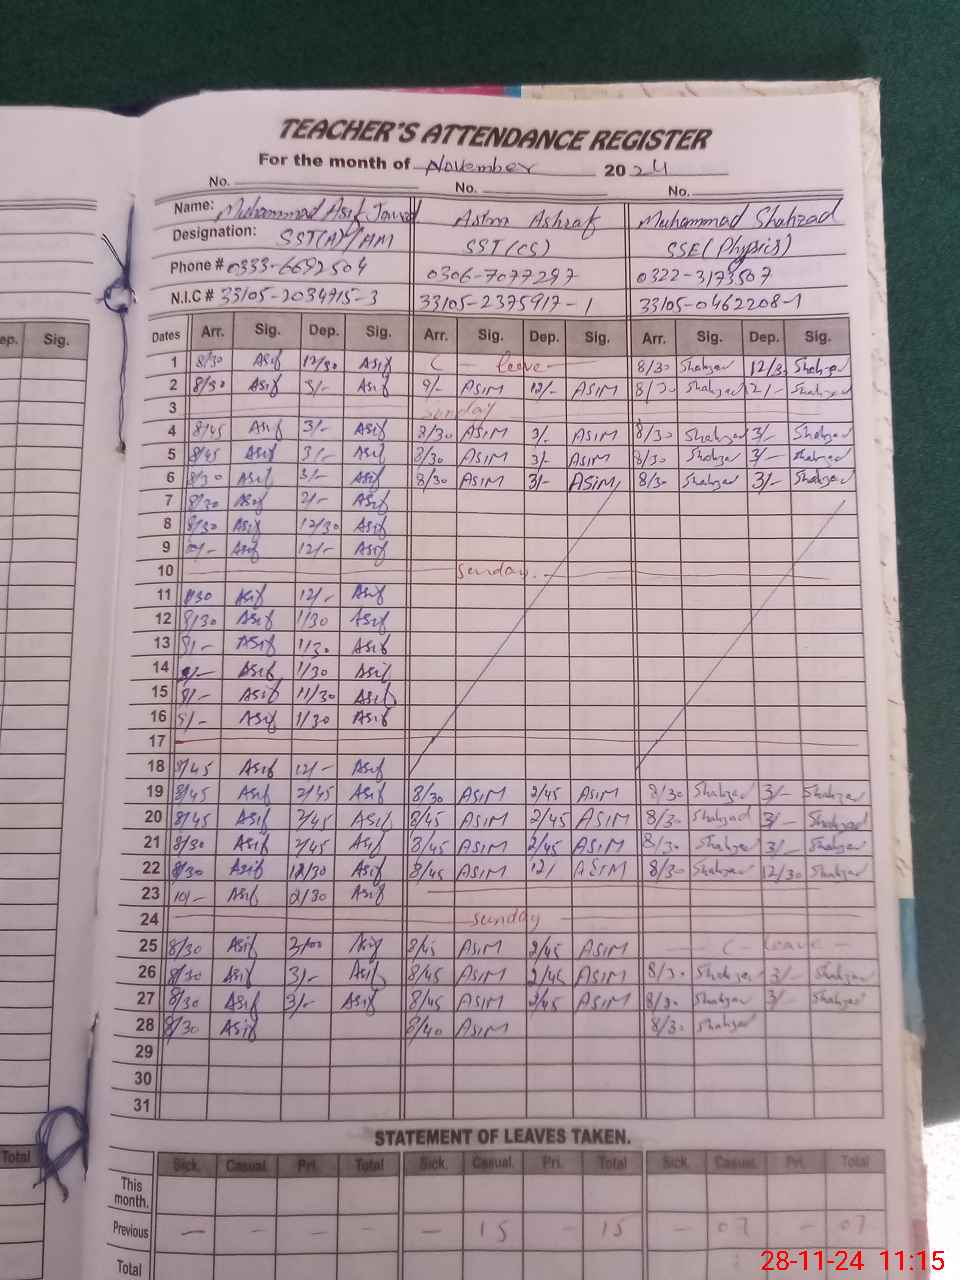 TEACHER'S ATTENDANCE REGISTER
For the month of November 2024
No. No. No.
Name: Muhammad Asif Javed Asim Ashraf Muhammad Shahzad
Designation: SST(A)/HM SST(CS) SSE(Physics)
Phone # 0333-6692504 0306-7077297 0322-3173507
N.I.C # 33105-2034715-3 33105-2375917-1 33105-0462208-1
ep. Sig. Dates Arr. Sig. Dep. Sig. Arr. Sig. Dep. Sig. Arr. Sig. Dep. Sig.
1 8/30 Asif 12/30 Asif C - leave - 8/30 Shahzad 12/3 Shahzad
2 8/30 Asif 3/- Asif 9/- ASIM 12/- ASIM 8/30 Shahzad 2/- Shahzad
3 Sunday
4 8/45 Asif 3/- Asif 8/30 ASIM 3/- ASIM 8/30 Shahzad 3/- Shahzad
5 8/45 Asif 3/- Asif 8/30 ASIM 3/- ASIM 8/30 Shahzad 3/- Shahzad
6 8/30 Asif 3/- Asif 8/30 ASIM 3/- ASIM 8/30 Shahzad 3/- Shahzad
7 8/30 Asif 2/- Asif
8 8/30 Asif 12/30 Asif
9 Asif 12/- Asif
10 Sunday
11 8/30 Asif 12/- Asif
12 8/30 Asif 1/30 Asif
13 9/- Asif 1/30 Asif
14 9/- Asif 1/30 Asif
15 9/- Asif 11/30 Asif
16 9/- Asif 1/30 Asif
17
18 8/45 Asif 12/- Asif
19 8/45 Asif 2/45 Asif 8/30 ASIM 2/45 ASIM 8/30 Shahzad 3/- Shahzad
20 8/45 Asif 2/45 Asif 8/45 ASIM 2/45 ASIM 8/30 Shahzad 3/- Shahzad
21 8/30 Asif 2/45 Asif 8/45 ASIM 2/45 ASIM 8/30 Shahzad 3/- Shahzad
22 8/30 Asif 12/30 Asif 8/45 ASIM 12/ ASIM 8/30 Shahzad 12/30 Shahzad
23 10/- Asif 2/30 Asif
24 Sunday
25 8/30 Asif 3/00 Asif 8/45 ASIM 2/45 ASIM - C - leave -
26 8/30 Asif 3/- Asif 8/45 ASIM 2/45 ASIM 8/30 Shahzad 3/- Shahzad
27 8/30 Asif 3/- Asif 8/45 ASIM 2/45 ASIM 8/30 Shahzad 3/- Shahzad
28 8/30 Asif 8/40 ASIM 8/30 Shahzad
29
30
31
STATEMENT OF LEAVES TAKEN.
Total Sick. Casual. Pri. Total Sick. Casual. Pri. Total Sick. Casual. Pri. Total
This month.
Previous - - - - - 15 - 15 - 07 - 07
Total
28-11-24 11:15